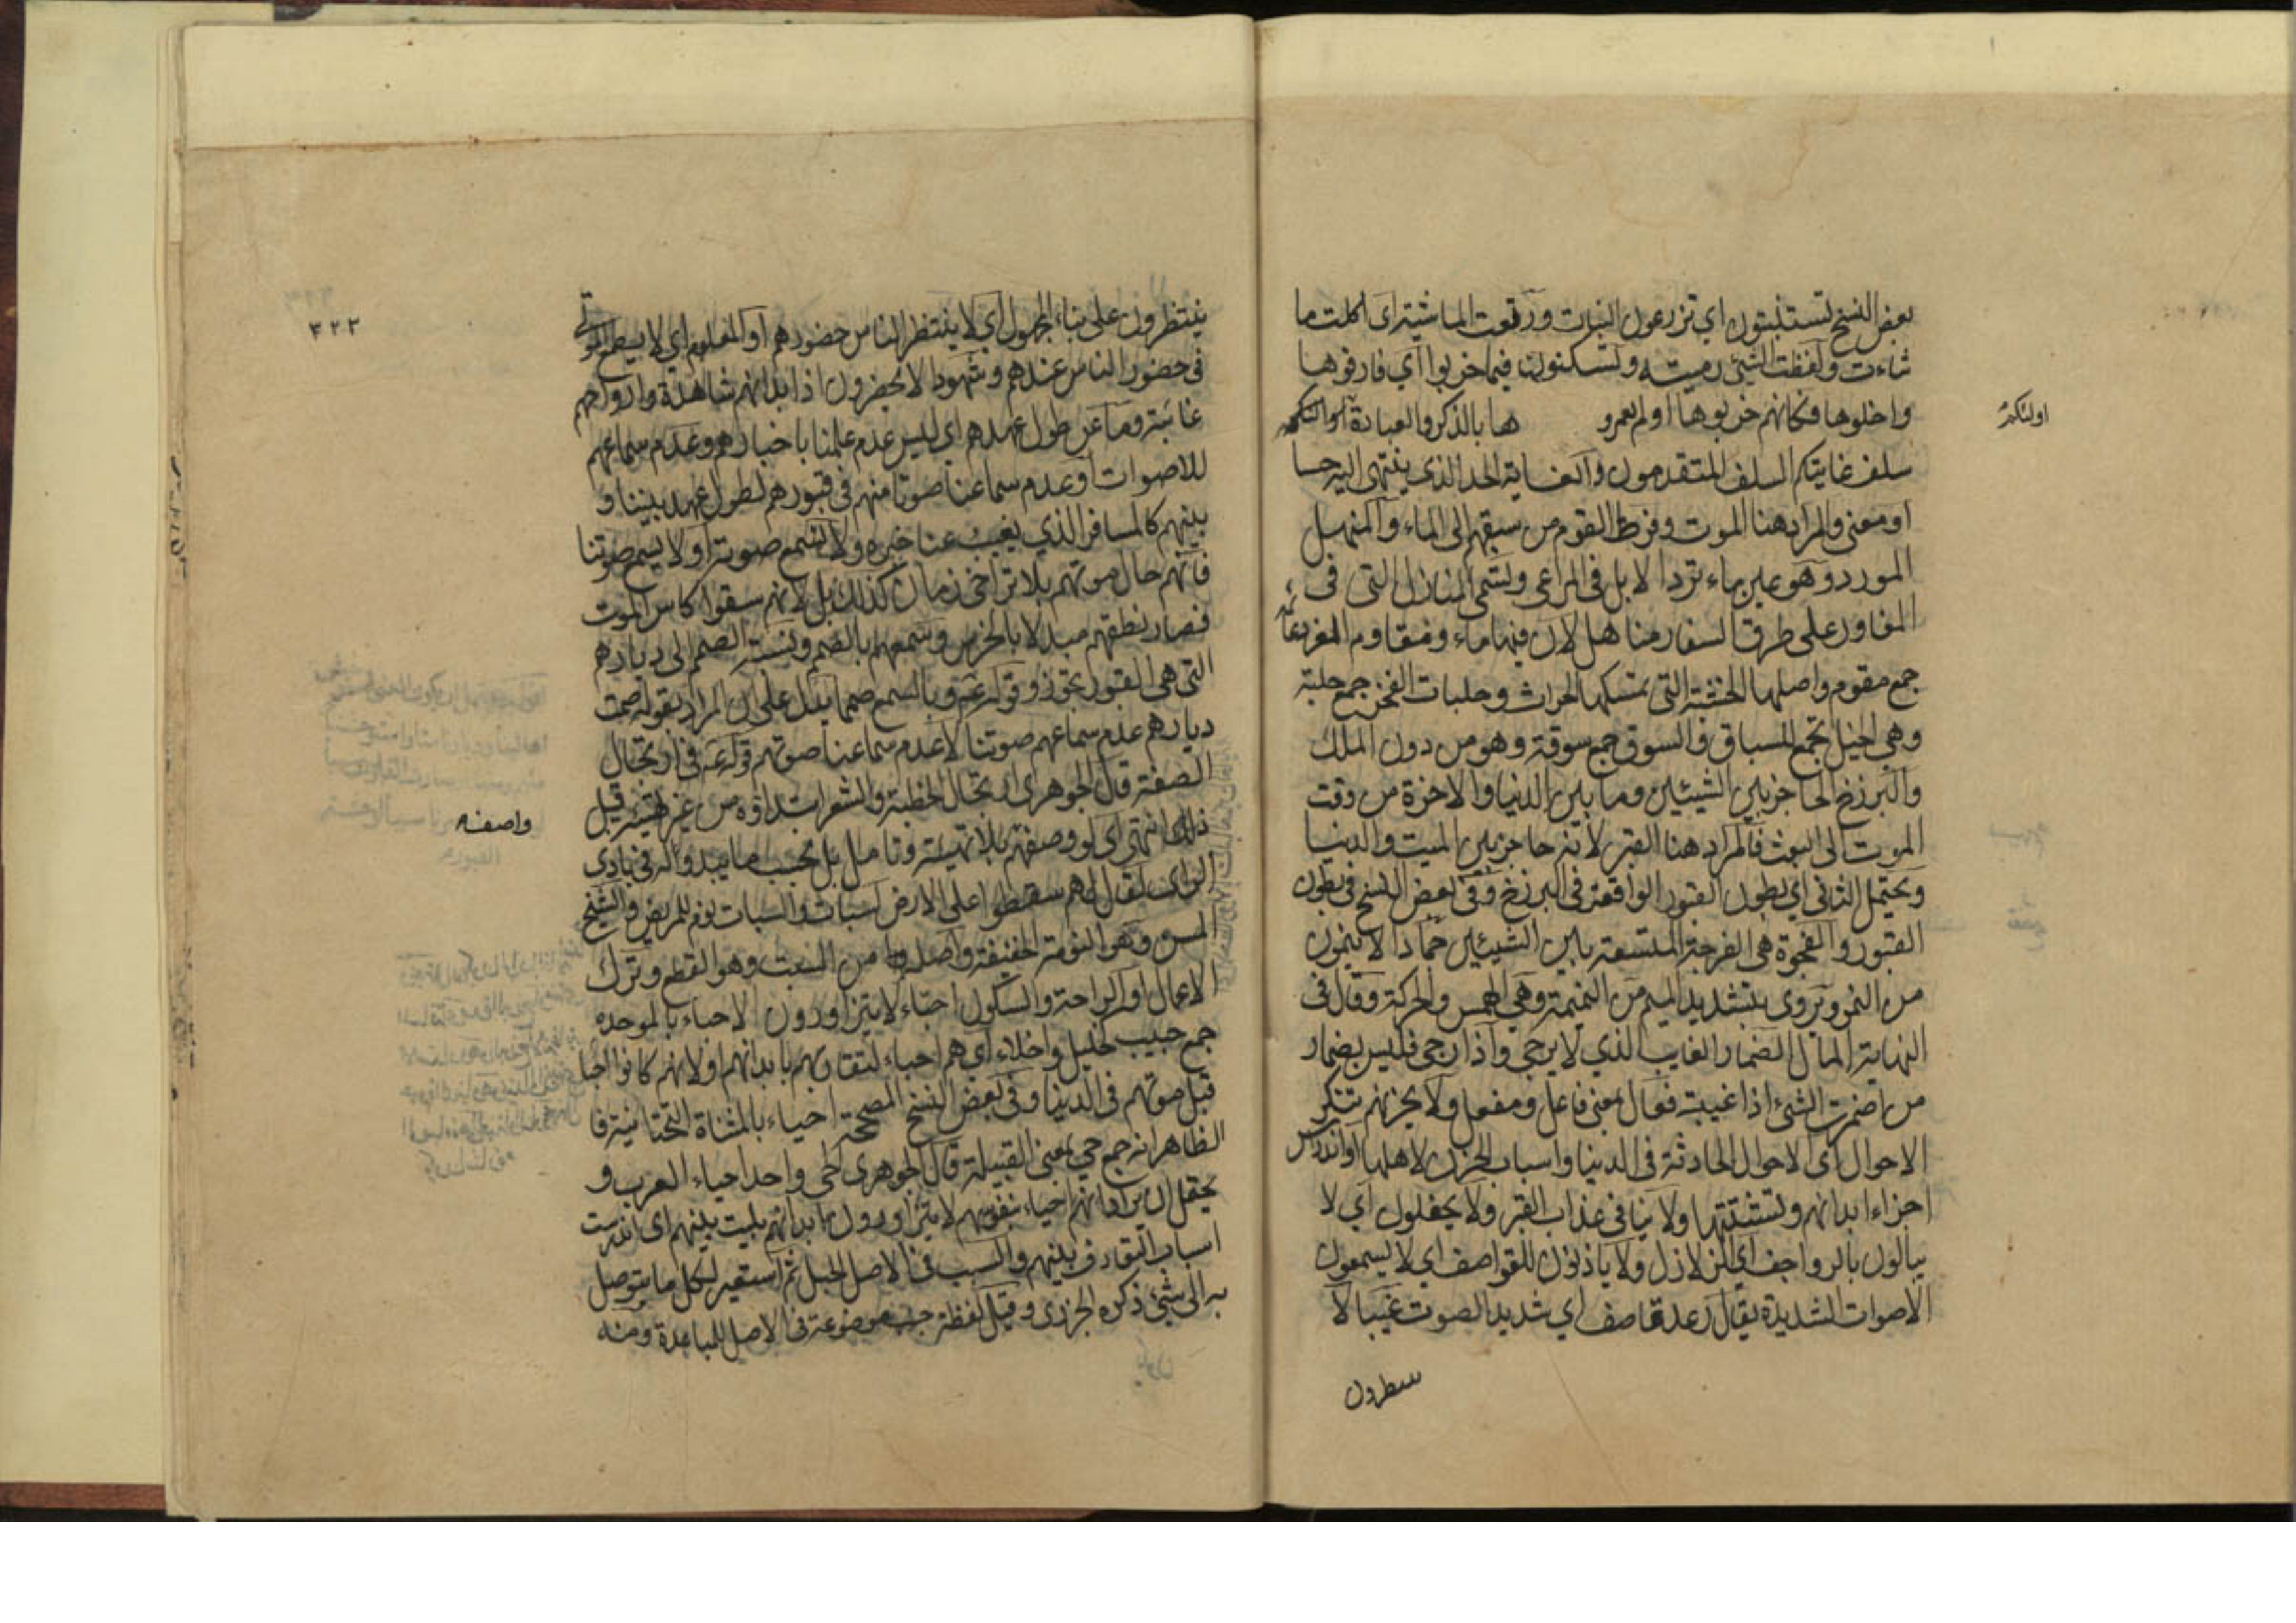 بعض النسخ تستنبتون اي تزرعون النبات ورتعت الماشية اى اكلت ما
شاءت ولفظت الشئ رميته وتسكنون فيما خربوا اي فارقوها
واخلوها فكانهم خربوها او لم يعمرو ها بالذكر والعبادة اولئكم
اولئكم
سلف غايتكم السلف المتقدمون والغاية الحد الذي ينتهى اليه حسا
او معنى والمراد هنا الموت وفرط القوم من سبقهم الى الماء والمنهل
المورد وهو عين ماء ترد الابل فى المراعى وتسمى المنازل التى فى
المفاوز على طرق السفار مناهل لان فيها ماء ومقاوم العز دعائم
جمع مقوم واصلها الخشبة التى يمسكها الحراث وحلبات الفخر جمع حلبة
وهى الخيل تجمع للسباق والسوق جمع سوقة وهو من دون الملك
والبرزخ الحاجز بين الشيئين وما بين الدنيا والاخرة من وقت
الموت الى البعث فالمراد هنا القبر لانه حاجز بين الميت والدنيا
ويحتمل الثانى اي بطون القبور الواقعة فى البرزخ وفى بعض النسخ فى بطون
القبور والفجوة هى الفرجة المتسعة بين الشيئين جمادا لا ينمون
من النمو ويروى بتشديد الميم من النميمة وهي الهمس والحركة وقال فى
النهاية المال الضمار الغايب الذي لا يرجى واذا رجى فليس بضمار
من اضمرت الشئ اذا غيبته فعال بمعنى فاعل او مفعل ولا يحزنهم تنكر
الاحوال اى الاحوال الحادثة فى الدنيا واسباب الحزن لاهلها او اندراس
اجزاء ابدانهم وتشتتها ولا ينافى عذاب القبر ولا يحفلون اي لا
يبالون بالرواجف اي الزلازل ولا ياذنون للقواصف اي لا يسمعون
الاصوات الشديدة يقال رعد قاصف اي شديد الصوت غيبا لا
ينتظرون على بناء المجهول اي لا ينتظر الناس حضورهم او المعلوم اي لا يطمع الموتى
٣٢٢
فى حضور الناس عندهم وشهودا لا يحضرون اذ ابدانهم شاهدة وارواحهم
غائبة وما عن طول عهدهم اى ليس عدم علمنا باخبارهم وعدم سماعهم
للاصوات او عدم سماعنا صوتا منهم فى قبورهم لطول عهد بيننا و
بينهم كالمسافر الذي يغيب عنا خبره ولا نسمع صوته او لا يسمع صوتنا
فانهم حال موتهم بلا تراخى زمان كذلك بل لانهم سقوا كاس الموت
فصار نطقهم مبدلا بالخرس وسمعهم بالصمم ونسبة الصمم الى ديارهم
التى هى القبور تجوز وقوله ع وبالسمع صمما يدل على ان المراد بقوله صمت
ديارهم عدم سماعهم صوتنا لا عدم سماعنا صوتهم قوله ع فى ارتجال
الصفة قال الجوهرى ارتجال الخطبة والشعر ابتداؤه من غير تهيئة قبل
ذلك انتهى اى لو وصفهم بلا تهيئة وتامل بل بحسب ما يبدو له فى بادى
واصفه
الراى لقال هم سقطوا على الارض لسبات والسبات نوم للمريض والشيخ
المسن وهو النومة الخفيفة واصله من السبت وهو القطع وترك
الاعمال او الراحة والسكون احباء لا يتزاورون الاحباء بالموحدة
جمع حبيب كخليل واخلاء اي هم احباء لتقاربهم بابدانهم او لانهم كانوا احباء
قبل موتهم فى الدنيا وفى بعض النسخ المصححة احياء بالمثناة التحتانية فا
الظاهر انه جمع حي بمعنى القبيلة قال الجوهرى الحى واحد احياء العرب و
يحتمل ان يراد انهم احياء بنفوسهم لا يتزاورون بابدانهم بليت بينهم اى اندرست
اسباب التعارف بينهم والسبب فى الاصل الحبل ثم استعير لكل ما يتوصل
به الى شئ ذكره الجزرى وقيل لفظة جنب موضوعة فى الاصل للمباعدة ومنه